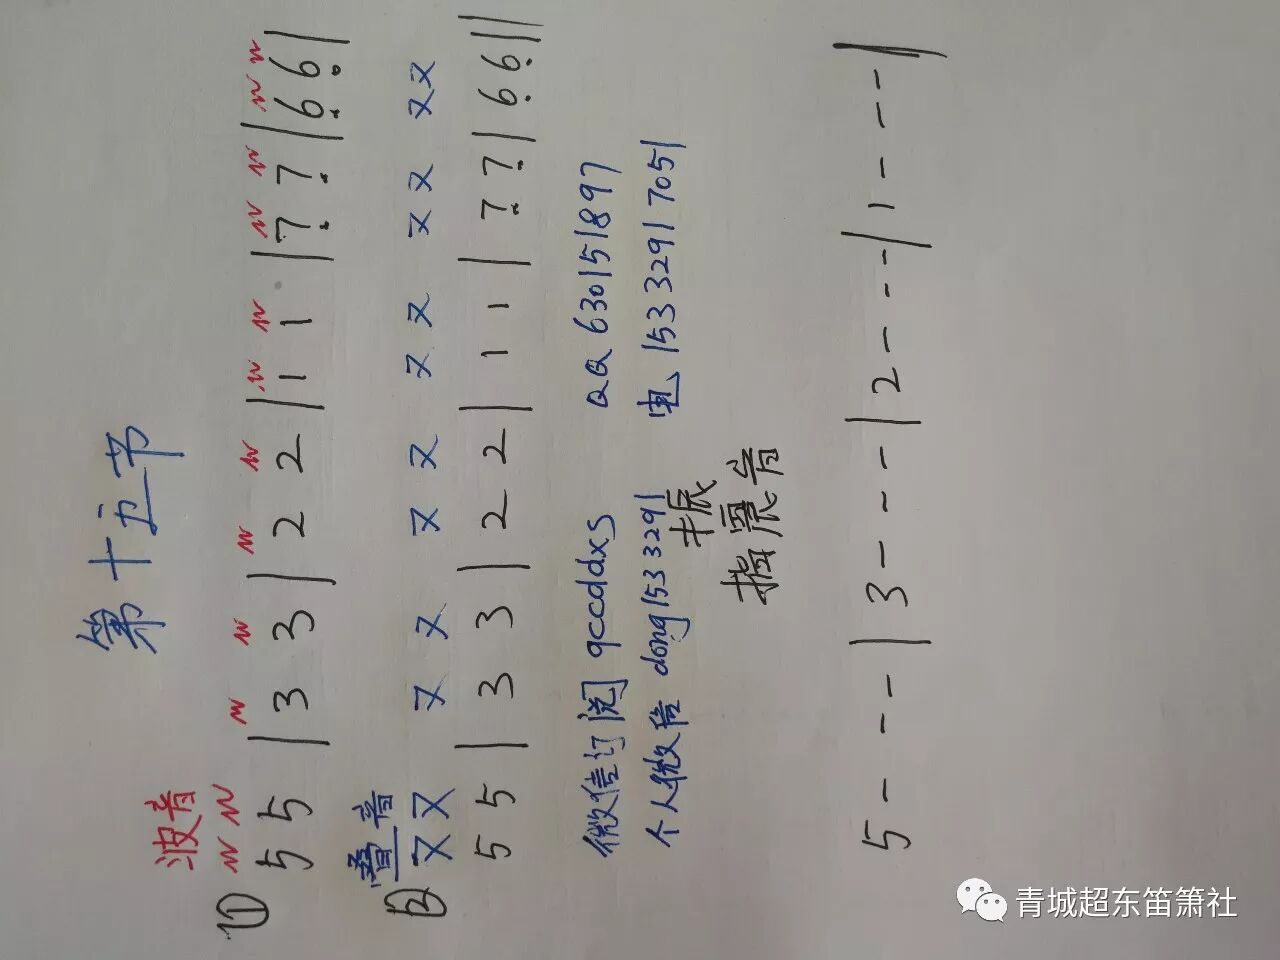 第十五节
波音
① 5 5 | 3 3 | 2 2 | 1 1 | 7̣ 7̣ | 6̣ 6̣ |
叠音
又 又 又 又 又 又 又 又 又 又 又 又
② 5 5 | 3 3 | 2 2 | 1 1 | 7̣ 7̣ | 6̣ 6̣ ||
微信订阅 qccddxs QQ 630151897
个人微信 dong1533291 电 153 3291 7051
振
指震音
5 - - - | 3 - - - | 2 - - - | 1 - - - |
青城超东笛箫社